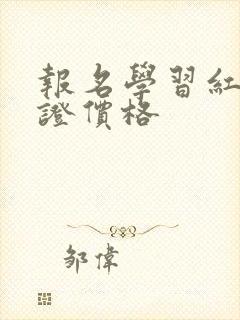 報名學習紅
證價格
邹偉